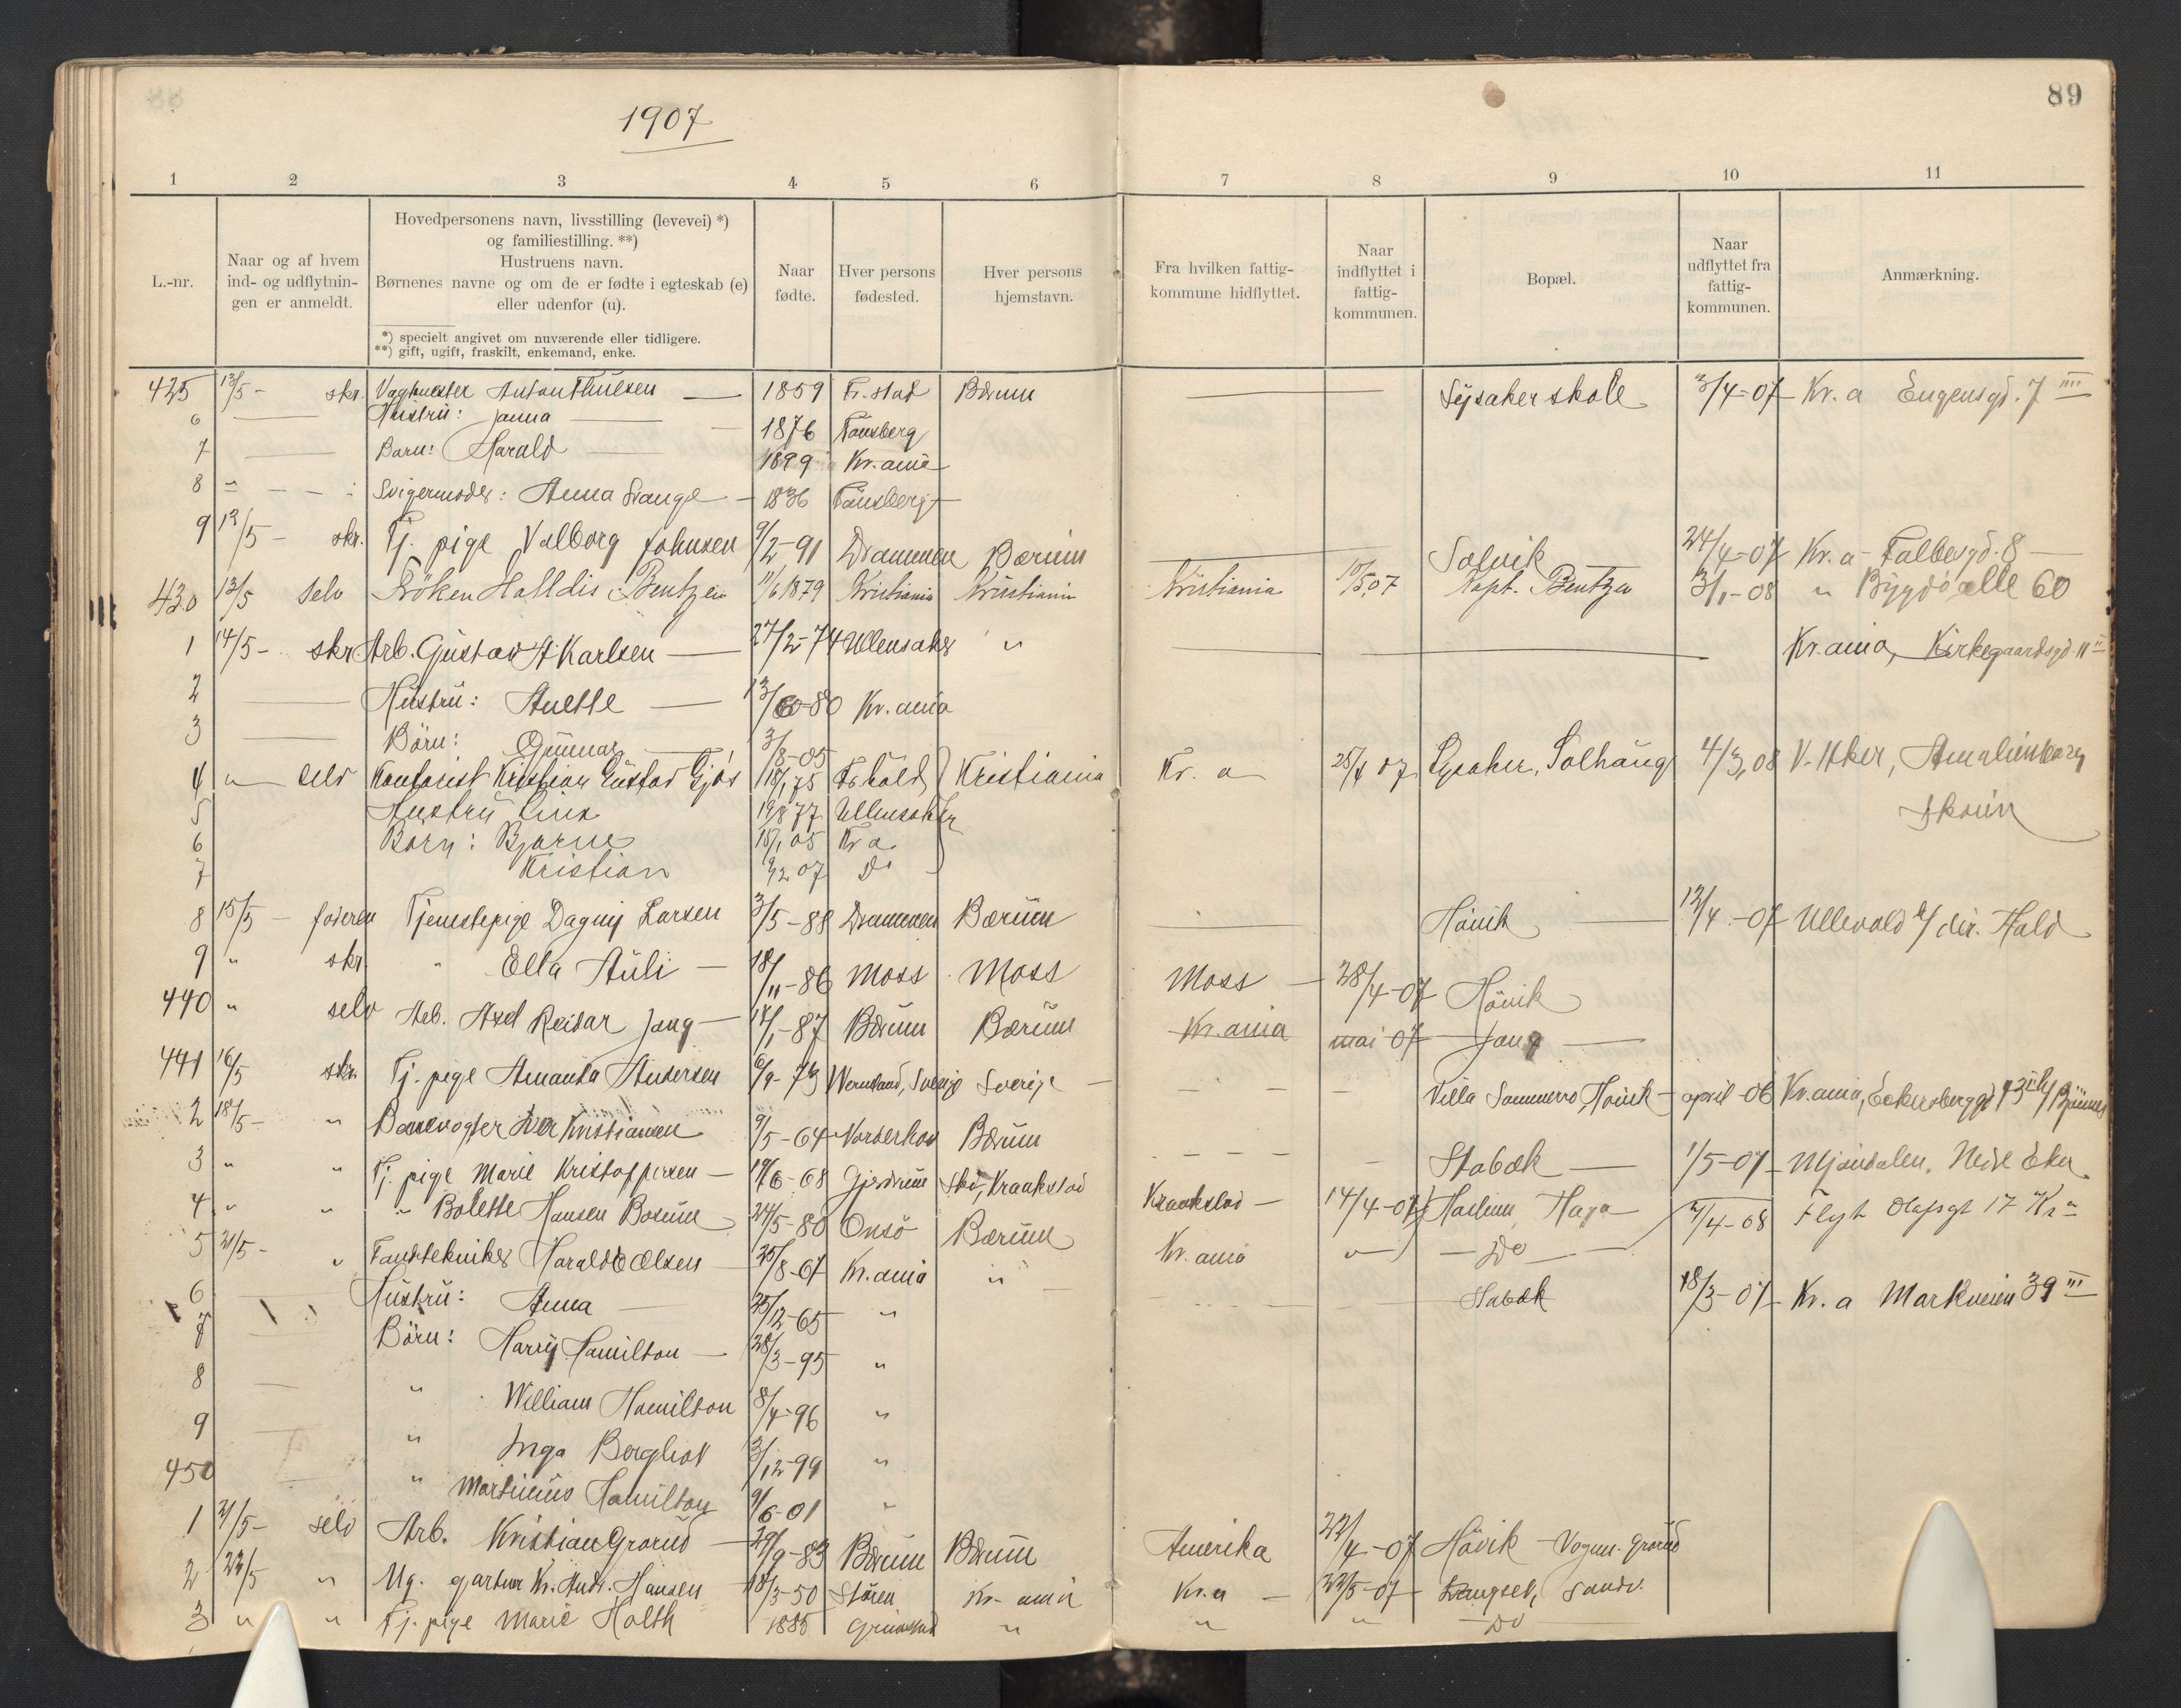 89
1907
1 2 3 4 5 6 7 8 9 10 11
L.-nr.
Naar og af hvem
ind- og udflytnin-
gen er anmeldt.
Hovedpersonens navn, livsstilling (levevei) *)
og familiestilling. **)
Hustruens navn.
Børnenes navne og om de er fødte i egteskab (e)
eller udenfor (u).
*) specielt angivet om nuværende eller tidligere.
**) gift, ugift, fraskilt, enkemand, enke.
Naar
fødte.
Hver persons
fødested.
Hver persons
hjemstavn.
Fra hvilken fattig-
kommune hidflyttet.
Naar
indflyttet i
fattig-
kommunen.
Bopæl.
Naar
udflyttet fra
fattig-
kommunen.
Anmærkning.
425 13/5 - skr. Vagtmester Anton Thuesen — 1859 Fr.stad Bærum — Lysaker skole 3/4-07 Kr.a Eugensgd. 7 IIII
6 — Hustru: Janna — 1876 Tønsberg
7 — Barn: Harald — 1899 Kr.ania
8 " - - - Svigermoder: Anna Svange - 1836 Tønsberg
9 13/5 - skr. Tj. pige Valborg Johnsen 9/2-91 Drammen Bærum — Solvik 24/4-07 Kr.a - Falbesgd. 8 —
430 13/5 selv Frøken Halldis Bentzen 11/6 1879 Kristiania Kristiania Kristiania 10/5,07 Kapt. Bentzen 3/1-08 " Bygdø alle 60
1 14/5 - skr Arb. Gustav A. Karlsen — 27/2-74 Ullensaker " — — Kr.ania, Kirkegaardsgd. 11 II
2 — Hustru: Anette — 13/6-80 Kr.ania
3 — Børn: Gunnar — 3/8-05
4 " selv Kontorist Kristian Gustav Gjøs 18/1 75 Fr.hald Kristiania Kr. a 25/4 07 Lysaker, Solhaug 4/3,08 V. Aker, Amalienborg
Skøien
5 Hustru Lina 19/8 77 Ullensaker
6 Børn: Bjarne 18/1 05 Kr a
7 Kristian 9/2 07 Do
8 15/5 - faderen Tjenestepige Dagny Larsen 3/5-88 Drammen Bærum — Høvik — 12/4-07 Ullevold h/ dir. Hald
9 " skr. " Ella Auli — 18/11-86 Moss Moss Moss — 28/4-07 Høvik
440 " selv Arb. Axel Reidar Jong — 14/1-87 Bærum Bærum Kr.ania mai 07 — Jong —
441 16/5 skr. Tj. pige Amanda Andersen 6/9-73 Wermland, Sverige Sverige — Villa Sommerro, Høvik - april -06 Kr.ania, Eckersberggd 43
2 18/5 - " Banevogter Iver Kristiansen 9/5-64 Norderhov Bærum - - - - Stabæk — 1/5-07 Mjøndalen, Nedre Eker
3 " " Tj. pige Marie Kristoffersen — 19/6-68 Gjerdrum Ski, Kraakstad Kraakstad — 14/4-07 Haslum, Haga
4 " " " Bolette Hansen Bærum 24/5-80 Onsø Bærum Kr.ania " — Do — 7/4-08 Flyt Olafsgt 17 Kr a
5 21/5 - " Tandtekniker Harald E Olsen 25/8-67 Kr.ania " - Stabæk 18/3-07 Kr. a Markveien 39 III
6 — Hustru: Anna — 25/12-65 "
7 — Børn: Harry Hamilton — 28/3-95 "
8 — " William Hamilton 8/4-96 "
9 — " Inga Bergliot 3/12-99 "
450 — " Martinius Hamilton 9/6-01 "
1 21/5 - selv Arb. Kristian Grorud — 29/9-83 Bærum Bærum Amerika 22/4-07 Høvik - Vogm. Grorud
2 22/5 " Ug. gartner Kr. Andr. Hansen — 18/3-50 Støren Kr-ania Kr.a — 22/5-07 Langset, Sandv.
3 " " Tj. pige Marie Holth 1885 Grimstad " " " Do